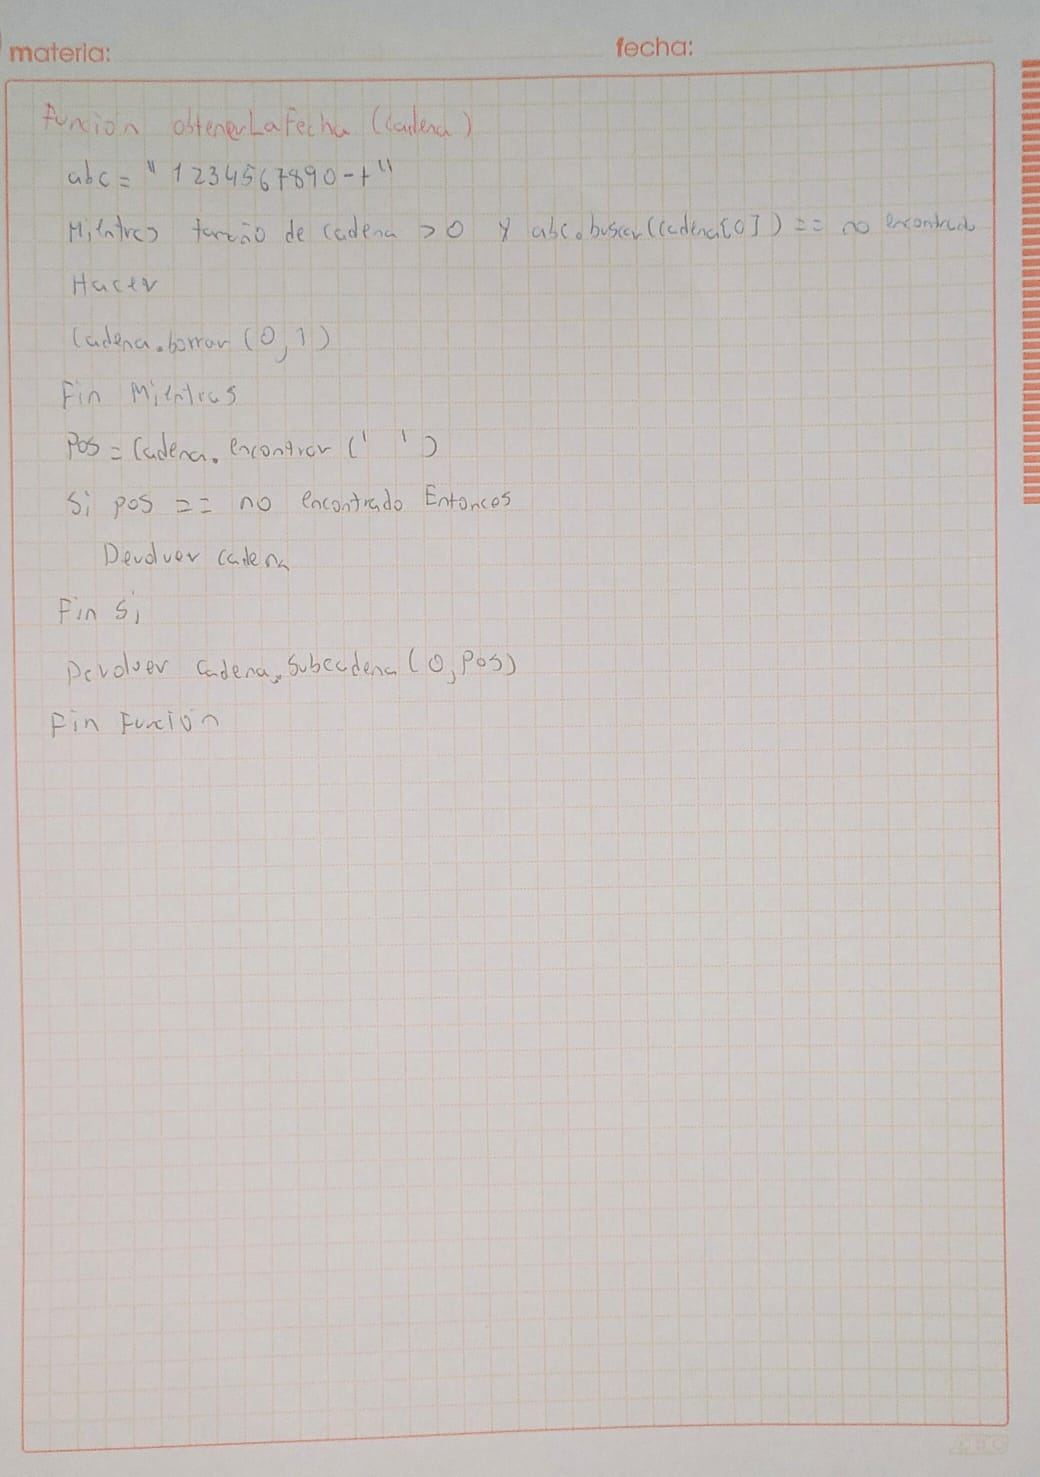 materia: fecha:
Función obtenerLaFecha (Cadena)
abc = "1234567890-+"
Mientras tamaño de cadena > 0 Y abc.buscar(cadena[0]) == no encontrado
Hacer
Cadena.borrar (0,1)
Fin Mientras
Pos = Cadena.encontrar (' ')
Si pos == no encontrado Entonces
Devolver cadena
Fin Si
Devolver Cadena.Subcadena (0, Pos)
Fin Función